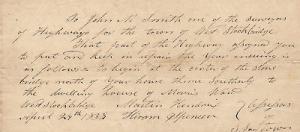 To John N. Smith one of the surveyors
of Highways for the town of West Stockbridge
That part of the Highway assigned you
to put and keep in repair the Year ensuing is
as follows to begin at the center of the stone
bridge north of your house thence Southerly to
the dwelling house of Ward
West Stockbridge Martin Hendrix Assessors
April 25th 1835 Hiram Spencer of